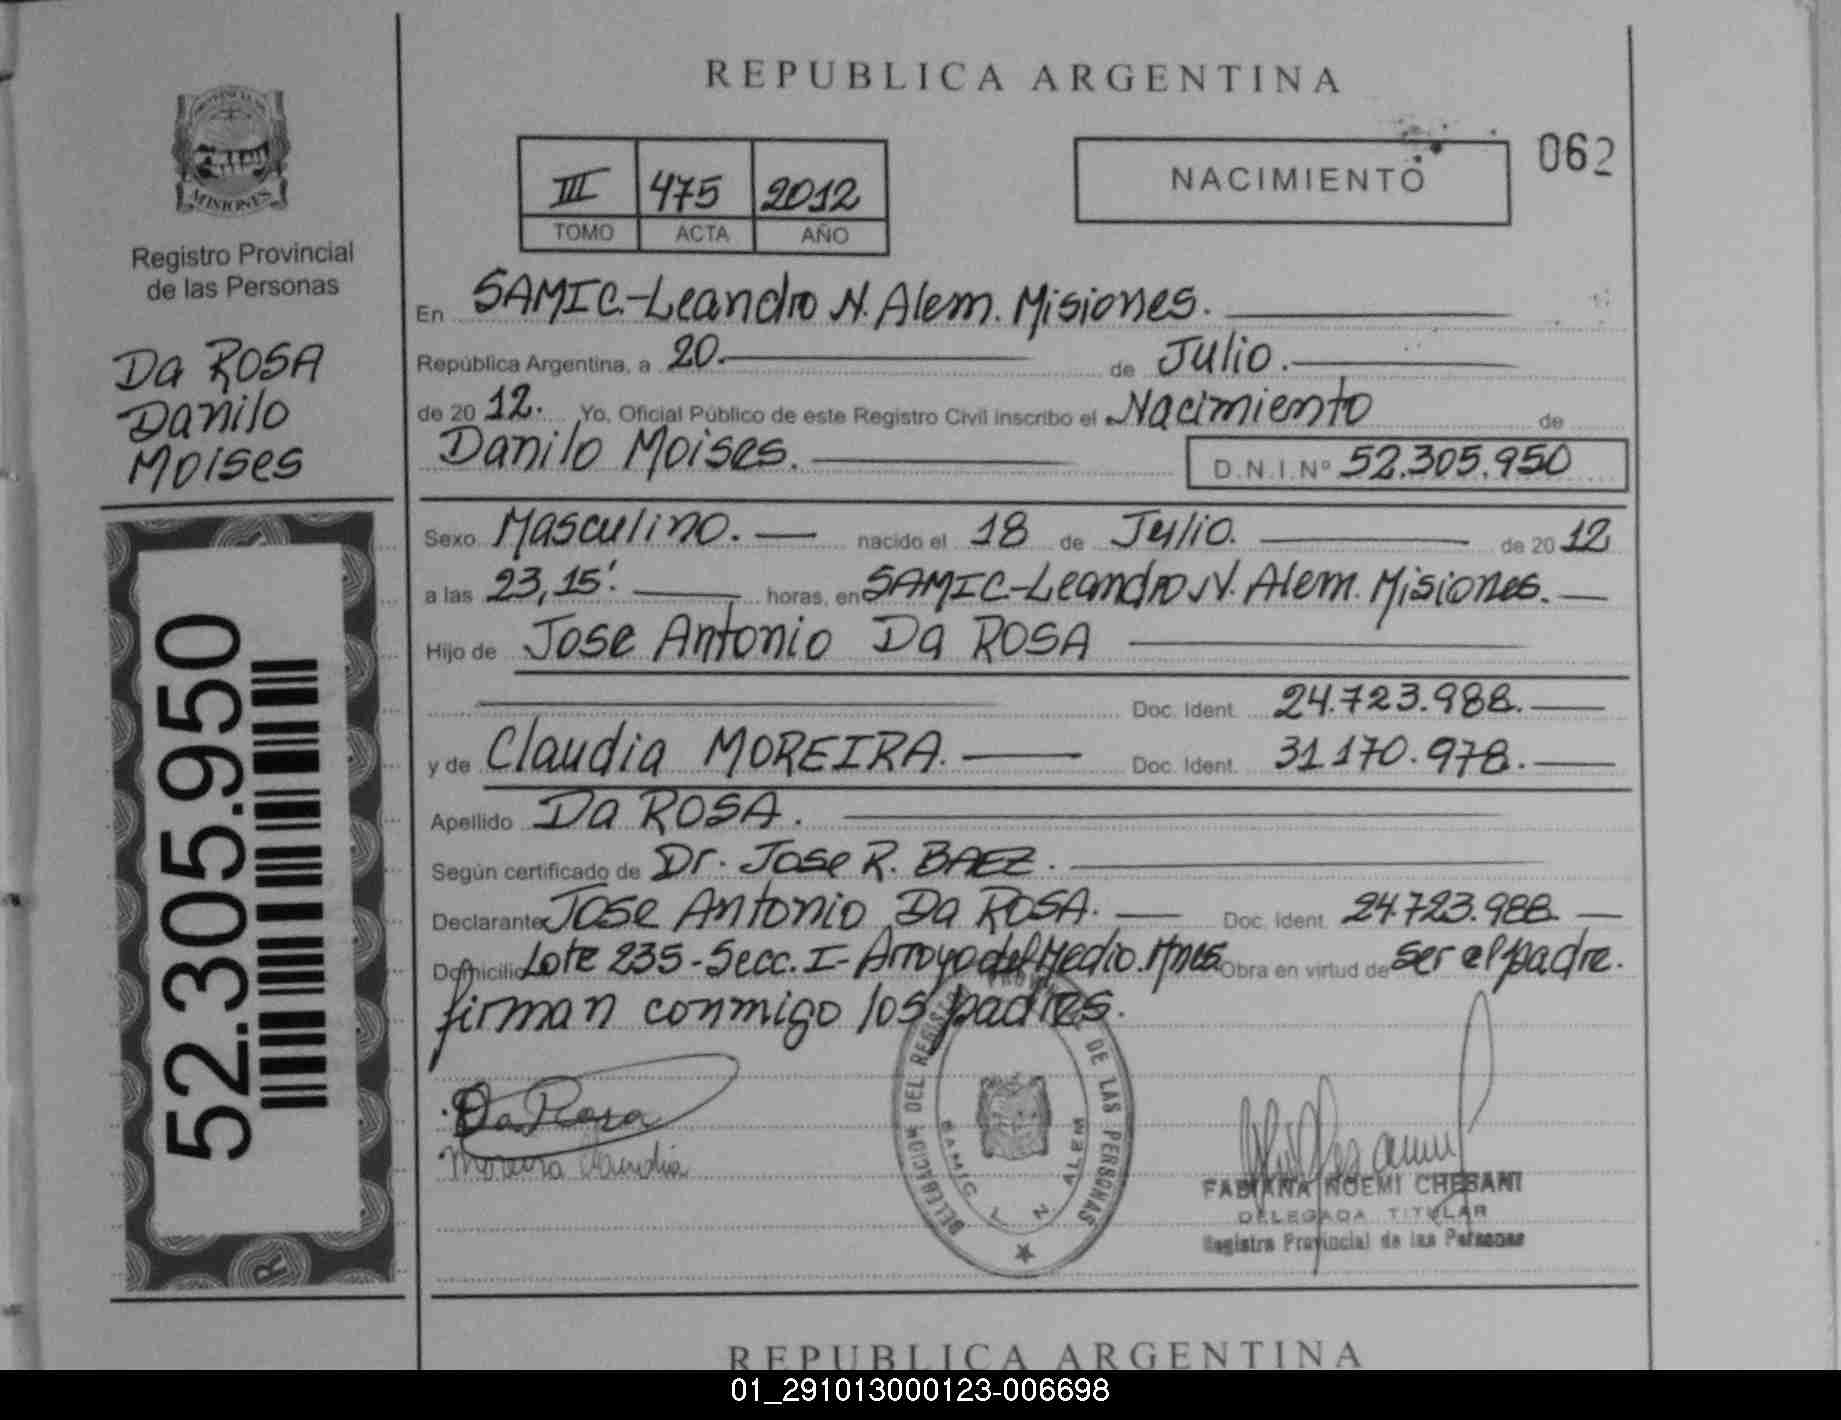 REPUBLICA ARGENTINA
PROVINCIA DE
MISIONES
Registro Provincial
de las Personas
Da ROSA
Danilo
Moises
52.305.950
III 475 2012
TOMO ACTA AÑO
NACIMIENTO
062
En SAMIC-Leandro N. Alem. Misiones.
República Argentina, a 20. de Julio.
de 20 12. Yo, Oficial Público de este Registro Civil inscribo el Nacimiento de
Danilo Moises. D.N.I.Nº 52.305.950
Sexo Masculino. nacido el 18 de Julio. de 20 12
a las 23,15'. horas, en SAMIC-Leandro N. Alem. Misiones.
Hijo de Jose Antonio Da ROSA
Doc. Ident. 24.723.988.
y de Claudia MOREIRA. Doc. Ident. 31.170.978.
Apellido Da ROSA.
Según certificado de Dr. Jose R. BAEZ.
Declarante Jose Antonio Da ROSA. Doc. Ident. 24.723.988
Domicilio Lote 235-Secc. I-Arroyo del Medio. Mnes Obra en virtud de ser el padre.
firman conmigo los padres.
Da Rosa
Moreira Claudia
DELEGACION DEL REGISTRO PROVINCIAL DE LAS PERSONAS
SAMIC L N ALEM
FABIANA NOEMI CHESANI
DELEGADA TITULAR
Registro Provincial de las Personas
REPUBLICA ARGENTINA
01_291013000123-006698